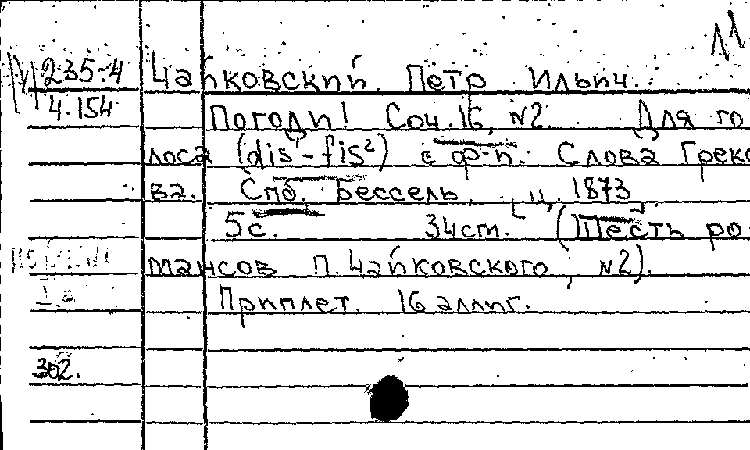 11
М 235-4 Чайковский Петр Ильич.
4.154 Погоди! Соч. 16, №2. Для го
лоса (dis¹-fis²) с ф-п. Слова Греко
ва. Спб. Бессель, ц. 1873
5с. 34см. (Шесть ро
мансов П. Чайковского, №2).
Приплет. 16 аллиг.
302.